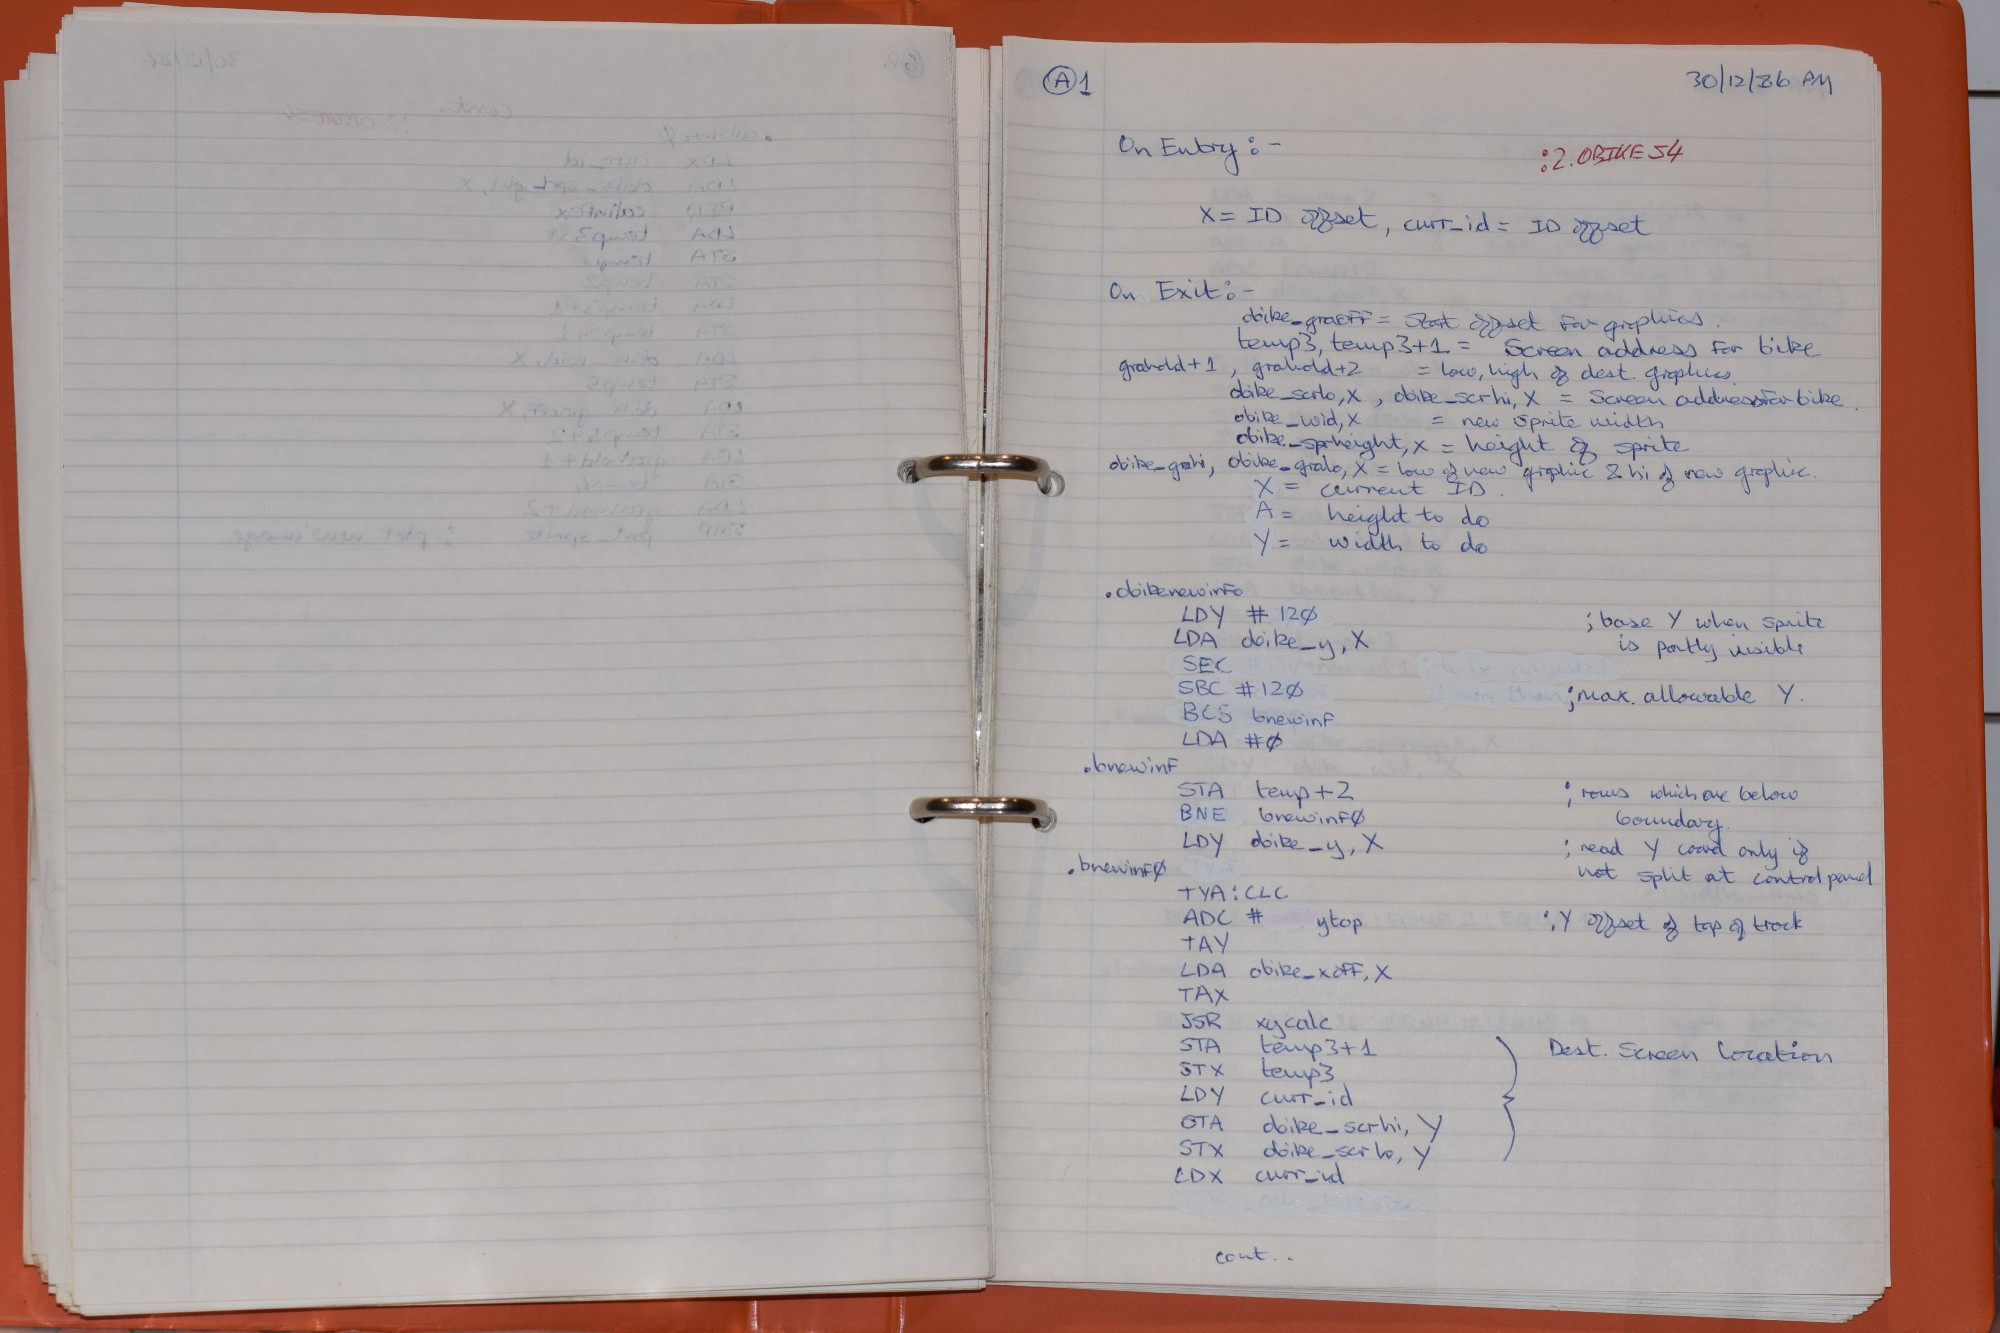 Ⓐ1 30/12/86 AM
On Entry :-
:2.OBIKES4
X = ID offset, curr_id = ID offset
On Exit :-
obike_graoff = start offset for graphics.
temp3, temp3+1 = Screen address for bike
grahold+1, grahold+2 = low, high of dest. graphics.
obike_scrlo,X , obike_scrhi,X = Screen address for bike.
obike_wid,X = new sprite width
obike_sprheight,X = height of sprite
obike_grahi, obike_gralo,X = low of new graphic & hi of new graphic.
X = current ID.
A = height to do
Y = width to do
.obikenewinfo
LDY #12Ø ;base Y when sprite
LDA obike_y,X is partly visible
SEC
SBC #12Ø ;max. allowable Y.
BCS bnewinf
LDA #Ø
.bnewinf
STA temp+2 ; rows which are below
BNE bnewinfØ boundary.
LDY obike_y,X ; read Y coord only if
.bnewinfØ not split at control panel
TYA:CLC
ADC # ytop ;Y offset of top of track
TAY
LDA obike_xoff,X
TAX
JSR xycalc
STA temp3+1 Dest. Screen Location
STX temp3
LDY curr_id
STA obike_scrhi,Y
STX obike_scrlo,Y
LDX curr_id
cont..